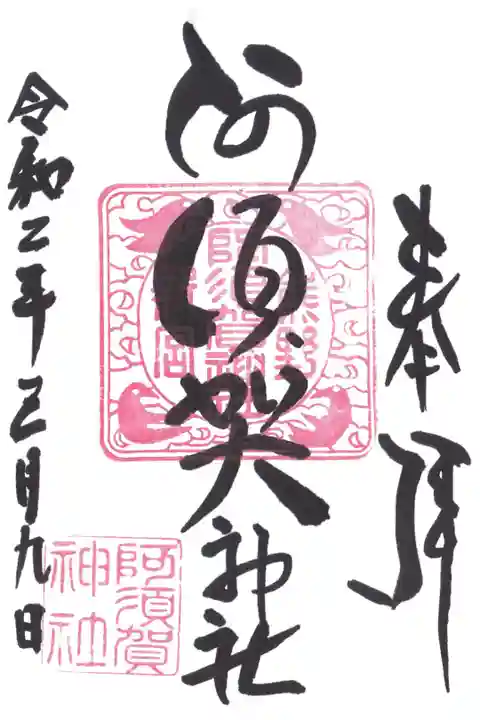 奉拝
阿須賀神社
令和二年三月九日
熊野
阿須賀神社
阿須賀
神社